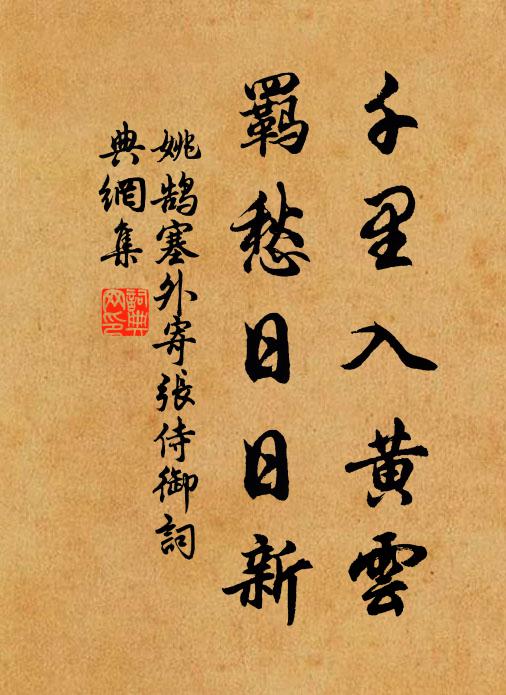 千里入黃雲
羈愁日日新
姚鵠塞外寄張侍御詞
典網集
詞典
网印